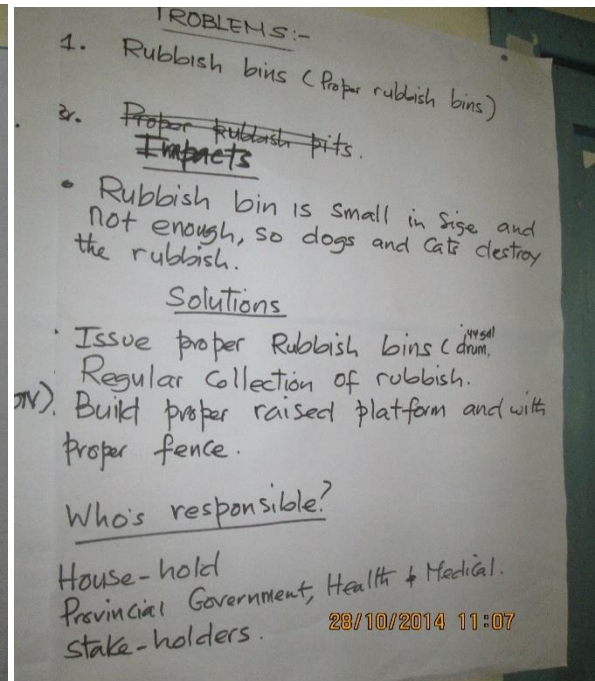 PROBLEMS:-
1. Rubbish bins (Proper rubbish bins)
2. Proper Rubbish pits.
Impacts
• Rubbish bin is small in Sige and
not enough, so dogs and Cats destroy
the rubbish.
Solutions
• Issue proper Rubbish bins (44gal drum,
Regular Collection of rubbish.
Build proper raised platform and with
proper fence.
Who's responsible?
House-hold
Provincial Government, Health & Medical.
Stake-holders.
28/10/2014 11:07